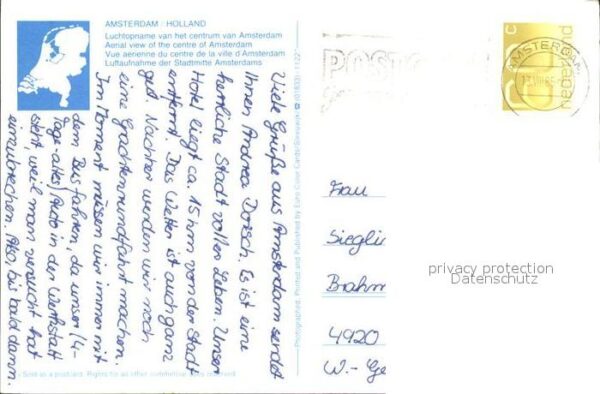 AMSTERDAM / HOLLAND
Luchtopname van het centrum van Amsterdam
Aerial view of the centre of Amsterdam
Vue aérienne du centre de la ville d'Amsterdam
Luftaufnahme der Stadtmitte Amsterdams
Viele Grüße aus Amsterdam sendet
Ihnen Andrea Dorsch. Es ist eine
herrliche Stadt voller Leben. Unser
Hotel liegt ca. 15 km von der Stadt
entfernt. Das Wetter ist auch ganz
gut. Nachher werden wir noch
eine Grachtenrundfahrt machen.
Im Moment müssen wir immer mit
dem Bus fahren, da unser (4-
Tage-altes) Auto in der Werkstatt
steht, weil man versucht hat
einzubrechen. Also, bis bald dann.
Photographed, Printed and Published by Euro Color Cards
Sold as a postcard. Rights for all other committime uses reserved
POSTCODE
AMSTERDAM
c
nederland
Frau
Siegli
Brahm
4920
W.- Ge
privacy protection
Datenschutz